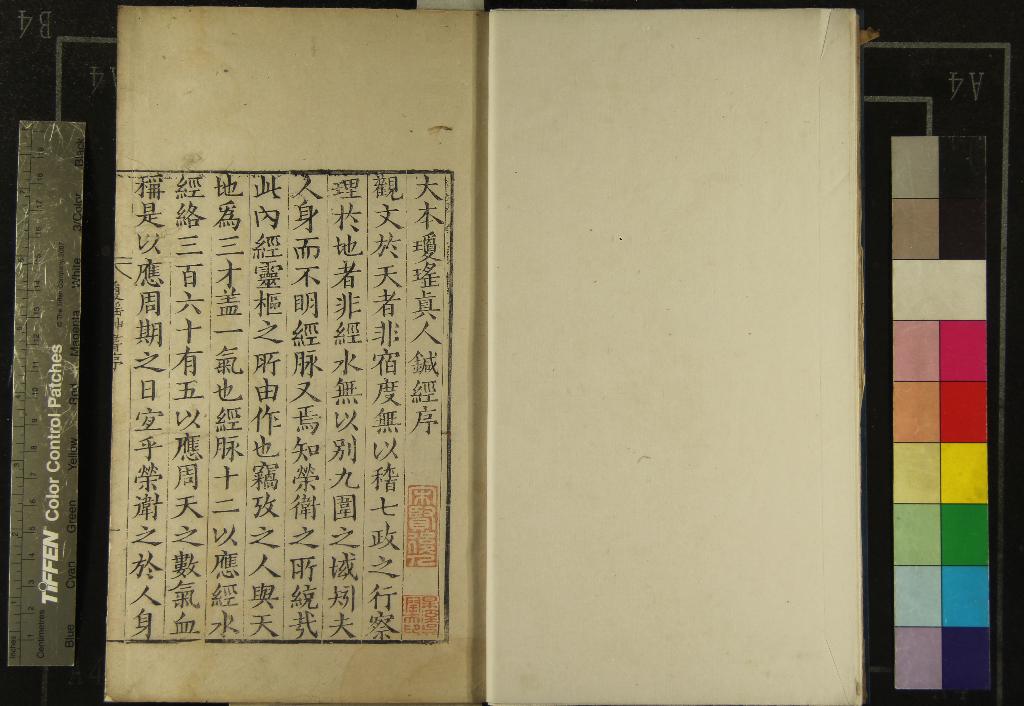 大本瓊瑤真人鍼經序
觀文於天者非宿度無以稽七政之行察
理於地者非經水無以別九圍之域矧夫
人身而不明經脉又焉知榮衛之所統㢤
此內經靈樞之所由作也竊攷之人與天
地爲三才盖一氣也經脉十二以應經水
經絡三百六十有五以應周天之數氣血
稱是以應周期之日宜乎榮衛之於人身
TIFFEN Color Control Patches
© The Tiffen Company, 2007
Blue Cyan Green Yellow Red Magenta White 3/Color Black
Inches
Centimetres
B4
A4
A4